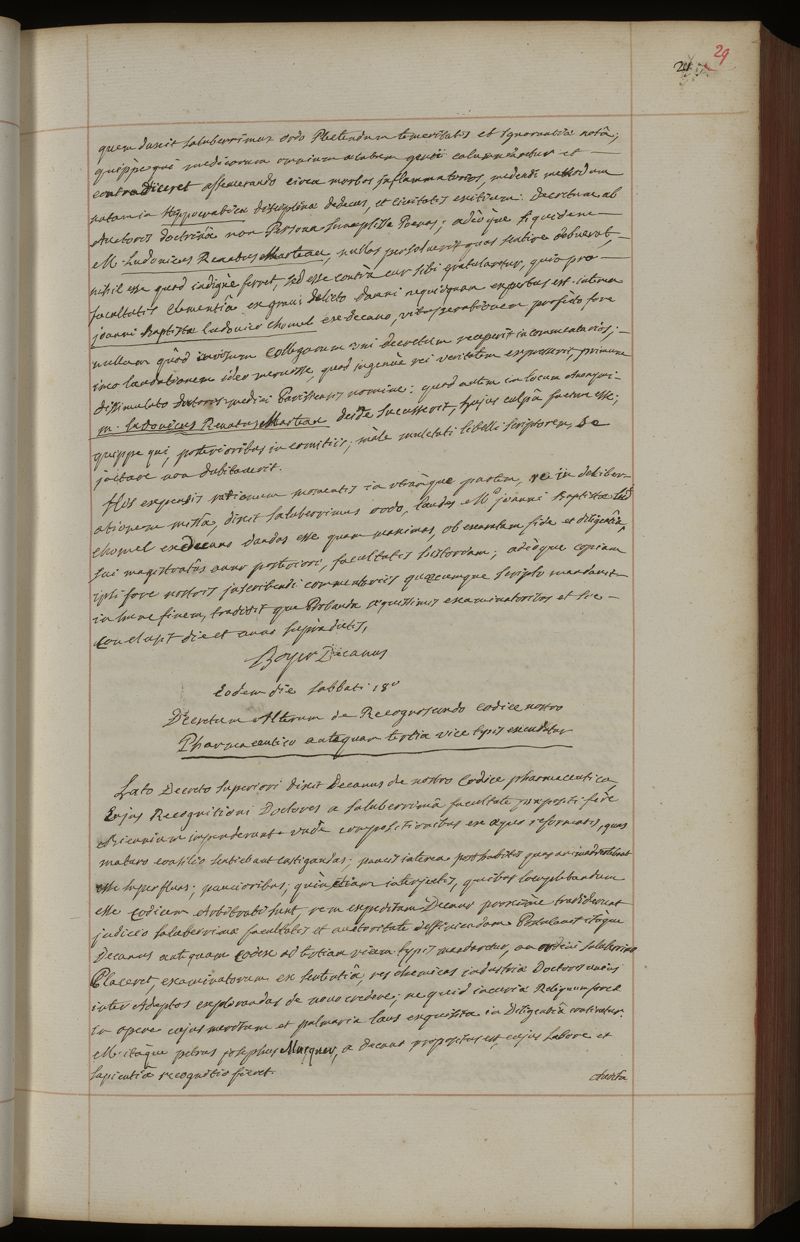 29
quem duxit saluberrimus ordo Plectendum temeritatis et Ignorantiæ notâ;
quippe qui medicorum omnium ætatem genii calumniaretur et
contradiceret asseverando circa morbos inflammatorios, medendi methodum
natam in Hippocraticæ disciplinæ dedecus, et civitatis exitium: Decretum ab
Auctoris doctrinâ non Persona sumpsisse Poenas; adeòque siquidem
M. Ludovicus Renatus Marteau, nullas persolverit quas sentire debuerat,
nihil esse quod indignè ferret, sed esse contrà cur sibi gratularetur, quia pro
facultatis clementiâ ex gravi delicto damni nequidquam expertus est. interea
joanni Baptistæ Ludovico Chomel ex-decano, vituperationem profecto fore
nullam quòd invisum Collegarum uni decretum receperit in commentarios;
imo laudationem ideo meruisse, quod ingenuè rei veritatem expresserit, primum
dissimulato doctoris medici Parisiensis nomine: quod autem in locum Anonymi
M. Ludovicus Renatus Marteau deinde successerit, hujus culpâ factum esse;
quippe qui, posterioribus in comitiis, malè mulctati libelli scriptorem, se
jactare non dubitaverit.
His expensis rationum momentis in utramque partem, re in deliber-
ationem missâ, dixit saluberrimus ordo, laudes M.º joanni Baptistæ Lud.
Chomel exdecano dandas esse quam maximas, ob exaratam fide et diligentiâ,
sui magistratûs anno posteriori, facultatis historiam; adeòque copiam
ipsi fore nostris inscribendi commentariis quæcumque scripto mandavit
in hunc finem, tradidit que Probanda æquissimis examinatoribus et sic
conclusit die et anno supradictis,
Boyer Decanus
Eodem die sabbati 18ª
Decretum Alterum de Recognoscendo Codice nostro
Pharmaceutico antequam tertia vice typis excudatur
Lato Decreto superiori dixit Decanus de nostro Codice pharmaceutico,
Cujus Recognitioni Doctores a saluberrimâ facultate præpositi ferè
Biennium impenderant. unde compositionibus ex æquo reformatis, quas
maturo consilio sentiebant castigandas; paucis interea posthabitis quas animadvertebant
esse superfluas; paucioribus, quin etiam interjectis, quibus locupletandum
esse Codicem Arbitrati sunt, rem expeditam Decanus tradiderunt
judicio saluberrimæ facultatis et auctoritate deffiniendam Postulavit itaque
Decanus antequam Codex ad tertiam vicem typis mandaretur, an ordini saluberrimo
Placeret, examinatorum ex sententiâ, res chemicas industriæ Doctoris unius
inter Adeptos explorandas de novo credere; ne quid incuriâ Reliquum foret
in opere cujus meritum et palmaria laus exquisita in Diligentiâ vertatur.
M. itaque petrus josephus Macquer, a decano propositus est, cujus Labore et
sapientiâ recognitio fieret.